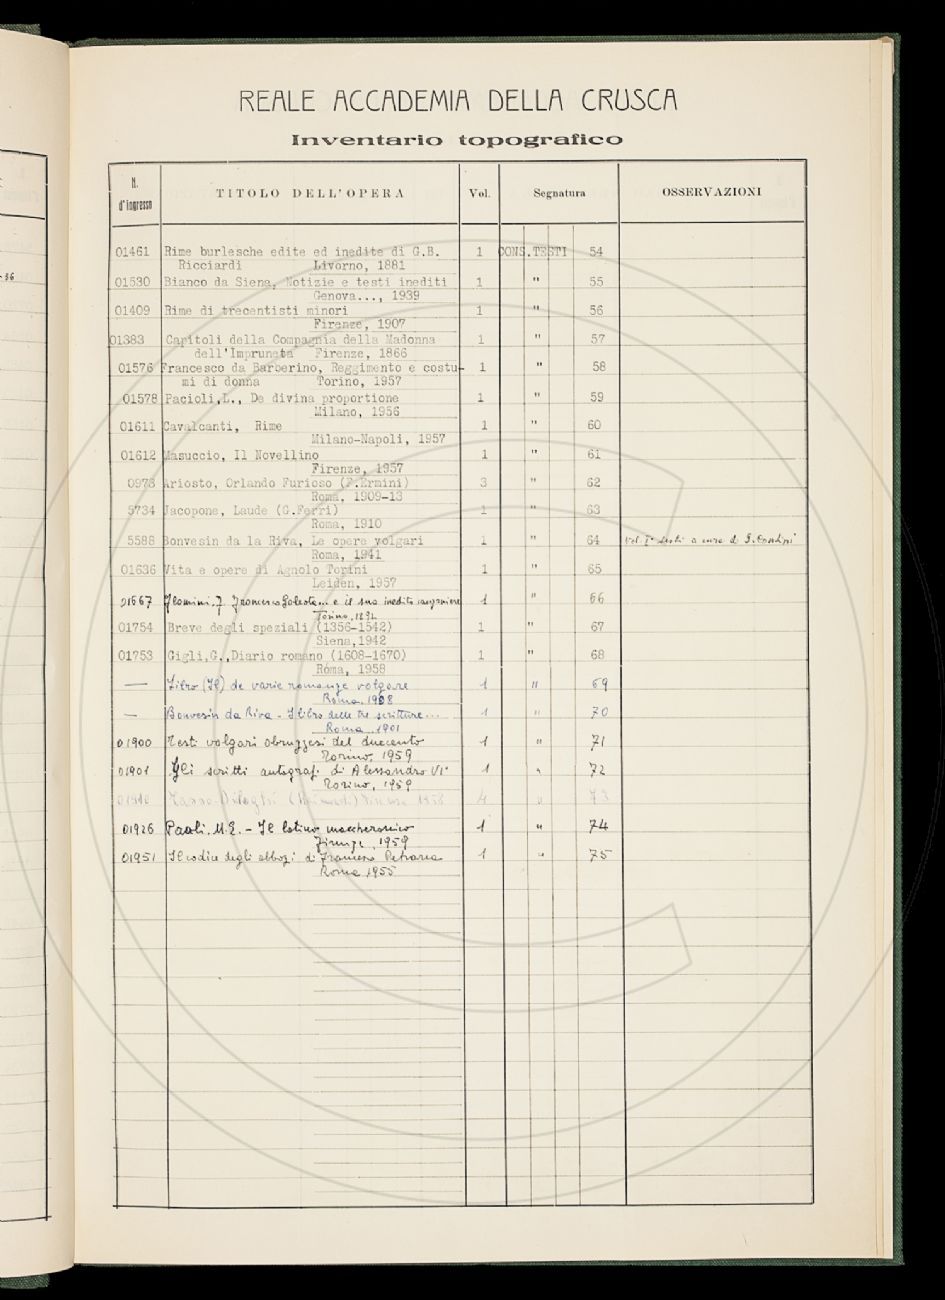 REALE ACCADEMIA DELLA CRUSCA
Inventario topografico
N. d'ingresso TITOLO DELL'OPERA Vol. Segnatura OSSERVAZIONI
01461 Rime burlesche edite ed inedite di G.B. 1 CONS.TESTI 54
Ricciardi Livorno, 1881
01530 Bianco da Siena, Notizie e testi inediti 1 " 55
Genova..., 1939
01409 Rime di trecentisti minori 1 " 56
Firenze, 1907
01383 Capitoli della Compagnia della Madonna 1 " 57
dell'Impruneta Firenze, 1866
01576 Francesco da Barberino, Reggimento e costu- 1 " 58
mi di donna Torino, 1957
01578 Pacioli,L., De divina proportione 1 " 59
Milano, 1956
01611 Cavalcanti, Rime 1 " 60
Milano-Napoli, 1957
01612 Masuccio, Il Novellino 1 " 61
Firenze, 1957
0973 Ariosto, Orlando Furioso (F.Ermini) 3 " 62
Roma, 1909-13
5734 Jacopone, Laude (G.Ferri) 1 " 63
Roma, 1910
5588 Bonvesin da la Riva, Le opere volgari 1 " 64 Vol. I° a cura di G. Contini
Roma, 1941
01636 Vita e opere di Agnolo Torini 1 " 65
Leiden, 1957
01667 Flamini. F. Francesco Galeota... e il suo inedito canzoniere 1 " 66
Torino, 1892
01754 Breve degli speziali (1356-1542) 1 " 67
Siena,1942
01753 Gigli,G.,Diario romano (1608-1670) 1 " 68
Roma, 1958
— Libro (Il) de varie romanze volgare 1 " 69
Roma, 1908
— Bonvesin da Riva - Il libro delle tre scritture... 1 " 70
Roma, 1901
01900 Testi volgari abruzzesi del duecento 1 " 71
Torino, 1959
01901 Gli scritti autograf. di Alessandro VI° 1 " 72
Torino, 1959
Tasso - Dialoghi Firenze 1958 4 " 73
01926 Paoli. M.E. - Il latino maccheronico 1 " 74
Firenze, 1959
01951 Il codice degli abbozzi di Francesco Petrarca 1 " 75
Roma 1955